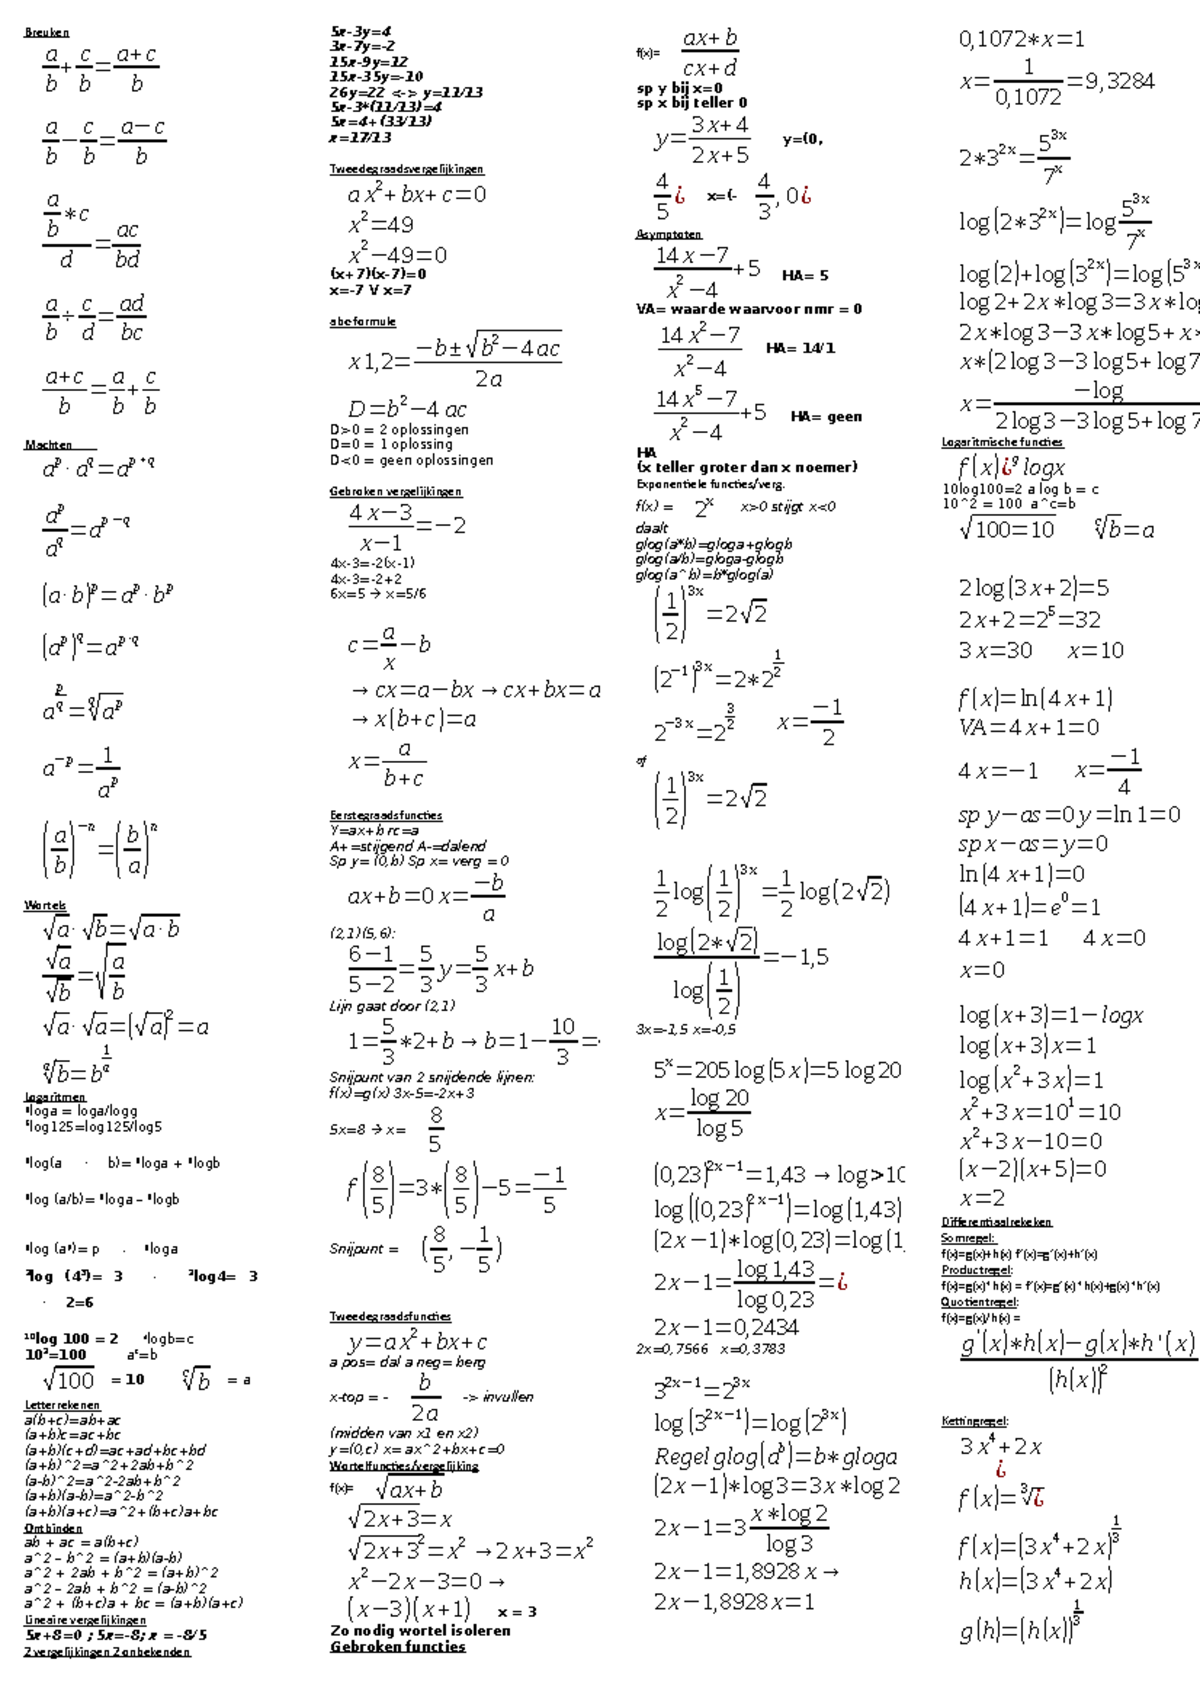 Breuken
a/b + c/b = a+c/b
a/b − c/b = a−c/b
a/b * c / d = ac/bd
a/b ÷ c/d = ad/bc
a+c/b = a/b + c/b
Machten
a^p · a^q = a^(p+q)
a^p/a^q = a^(p−q)
(a·b)^p = a^p · b^p
(a^p)^q = a^(p·q)
a^(p/q) = q√a^p
a^−p = 1/a^p
(a/b)^−n = (b/a)^n
Wortels
√a · √b = √a·b
√a/√b = √a/b
√a · √a = (√a)² = a
q√b = b^(1/q)
Logaritmen
ᵍloga = loga/logg
⁵log125=log125/log5
ᵍlog(a · b)= ᵍloga + ᵍlogb
ᵍlog (a/b)= ᵍloga – ᵍlogb
ᵍlog (aᵖ)= p · ᵍloga
²log (4³)= 3 · ²log4= 3
· 2=6
¹⁰log 100 = 2 ᵃlogb=c
10²=100 aᶜ=b
√100 = 10 c√b = a
Letterrekenen
a(b+c)=ab+ac
(a+b)c=ac+bc
(a+b)(c+d)=ac+ad+bc+bd
(a+b)^2=a^2+2ab+b^2
(a-b)^2=a^2-2ab+b^2
(a+b)(a-b)=a^2-b^2
(a+b)(a+c)=a^2+(b+c)a+bc
Ontbinden
ab + ac = a(b+c)
a^2 – b^2 = (a+b)(a-b)
a^2 + 2ab + b^2 = (a+b)^2
a^2 – 2ab + b^2 = (a-b)^2
a^2 + (b+c)a + bc = (a+b)(a+c)
Lineaire vergelijkingen
5x+8=0 ; 5x=-8; x = -8/5
2 vergelijkingen 2 onbekenden
5x-3y=4
3x-7y=-2
15x-9y=12
15x-35y=-10
26y=22 <-> y=11/13
5x-3*(11/13)=4
5x=4+(33/13)
x=17/13
Tweedegraadsvergelijkingen
a x² + bx + c = 0
x² = 49
x² − 49 = 0
(x+7)(x-7)=0
x=-7 V x=7
abc formule
x 1,2 = −b ± √b² − 4 ac / 2a
D = b² − 4 ac
D>0 = 2 oplossingen
D=0 = 1 oplossing
D<0 = geen oplossingen
Gebroken vergelijkingen
4 x − 3 / x − 1 = −2
4x-3=-2(x-1)
4x-3=-2+2
6x=5 → x=5/6
c = a/x − b
→ cx = a − bx → cx + bx = a
→ x(b+c) = a
x = a / b+c
Eerstegraadsfuncties
Y=ax+b rc=a
A+=stijgend A-=dalend
Sp y= (0,b) Sp x= verg = 0
ax+b=0 x = −b/a
(2,1)(5,6):
6−1/5−2 = 5/3 y = 5/3 x+b
Lijn gaat door (2,1)
1 = 5/3 * 2 + b → b = 1 − 10/3 = -
Snijpunt van 2 snijdende lijnen:
f(x)=g(x) 3x-5=-2x+3
5x=8 → x= 8/5
f(8/5) = 3*(8/5) − 5 = −1/5
Snijpunt = (8/5, −1/5)
Tweedegraadsfuncties
y = a x² + bx + c
a pos= dal a neg= berg
x-top = - b/2a -> invullen
(midden van x1 en x2)
y=(0,c) x= ax^2+bx+c=0
Wortelfuncties/vergelijking
f(x)= √ax+b
√2x+3 = x
√2x+3² = x² → 2 x+3 = x²
x² − 2 x − 3 = 0 →
(x−3)(x+1) x = 3
Zo nodig wortel isoleren
Gebroken functies
f(x)= ax+b / cx+d
sp y bij x=0
sp x bij teller 0
y = 3 x+4 / 2 x+5 y=(0,
4/5 ¿ x=(- 4/3, 0¿
Asymptoten
14 x −7 / x² −4 + 5 HA= 5
VA= waarde waarvoor nmr = 0
14 x² −7 / x² −4 HA= 14/1
14 x⁵ −7 / x² −4 + 5 HA= geen
HA
(x teller groter dan x noemer)
Exponentiele functies/verg.
f(x) = 2^x x>0 stijgt x<0
daalt
glog(a*b)=gloga+glogb
glog(a/b)=gloga-glogb
glog(a^b)=b*glog(a)
(1/2)^3x = 2√2
(2^−1)^3x = 2*2^(1/2)
2^−3x = 2^(3/2) x = −1/2
of
(1/2)^3x = 2√2
1/2 log(1/2)^3x = 1/2 log(2√2)
log(2*√2) / log(1/2) = −1,5
3x=-1,5 x=-0,5
5^x = 205 log(5 x) = 5 log 20
x = log 20 / log 5
(0,23)^(2x−1) = 1,43 → log>10
log((0,23)^(2x−1)) = log(1,43)
(2x−1)*log(0,23) = log(1,
2x−1 = log 1,43 / log 0,23 = ¿
2x−1=0,2434
2x=0,7566 x=0,3783
3^(2x−1) = 2^3x
log(3^(2x−1)) = log(2^(3x))
Regel glog(a^b) = b*gloga
(2x−1)*log3 = 3x*log2
2x−1 = 3 x*log2 / log3
2x−1=1,8928 x →
2x−1,8928 x=1
0,1072*x=1
x = 1 / 0,1072 = 9,3284
2*3^2x = 5^3x / 7^x
log(2*3^2x) = log 5^3x / 7^x
log(2)+log(3^2x)=log(5^3x
log2+2x*log3=3x*log
2x*log3−3x*log5+x*
x*(2log3−3log5+log7
x = −log / 2log3−3log5+log7
Logaritmische functies
f(x)¿^g logx
10log100=2 a log b = c
10^2 = 100 a^c=b
√100=10 c√b=a
2log(3x+2)=5
2x+2=2⁵=32
3x=30 x=10
f(x)=ln(4x+1)
VA=4x+1=0
4x=−1 x = −1/4
sp y−as=0 y=ln1=0
sp x−as=y=0
ln(4x+1)=0
(4x+1)=e⁰=1
4x+1=1 4x=0
x=0
log(x+3)=1−logx
log(x+3)x=1
log(x²+3x)=1
x²+3x=10¹=10
x²+3x−10=0
(x−2)(x+5)=0
x=2
Differentiaalrekeken
Somregel:
f(x)=g(x)+h(x) f'(x)=g'(x)+h'(x)
Productregel:
f(x)=g(x)*h(x) = f'(x)=g'(x)*h(x)+g(x)*h'(x)
Quotientregel:
f(x)=g(x)/h(x) =
g'(x)*h(x)−g(x)*h'(x) / (h(x))²
Kettingregel:
3x⁴+2x
¿
f(x)=³√¿
f(x)=(3x⁴+2x)^(1/3)
h(x)=(3x⁴+2x)
g(h)=(h(x))^(1/3)